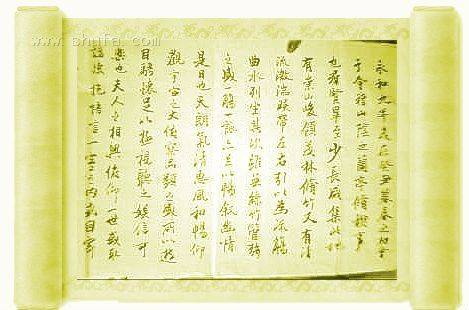 www.shufa.com
永和九年歲在癸丑暮春之初會
于會稽山陰之蘭亭脩稧事
也群賢畢至少長咸集此地
有崇山峻領茂林脩竹又有清
流激湍暎帶左右引以為流觴
曲水列坐其次雖無絲竹管弦
之盛一觴一詠亦足以暢敘幽情
是日也天朗氣清惠風和暢仰
觀宇宙之大俯察品類之盛所以遊
目騁懷足以極視聽之娛信可
樂也夫人之相與俯仰一世或取
諸懷抱悟言一室之內或因寄